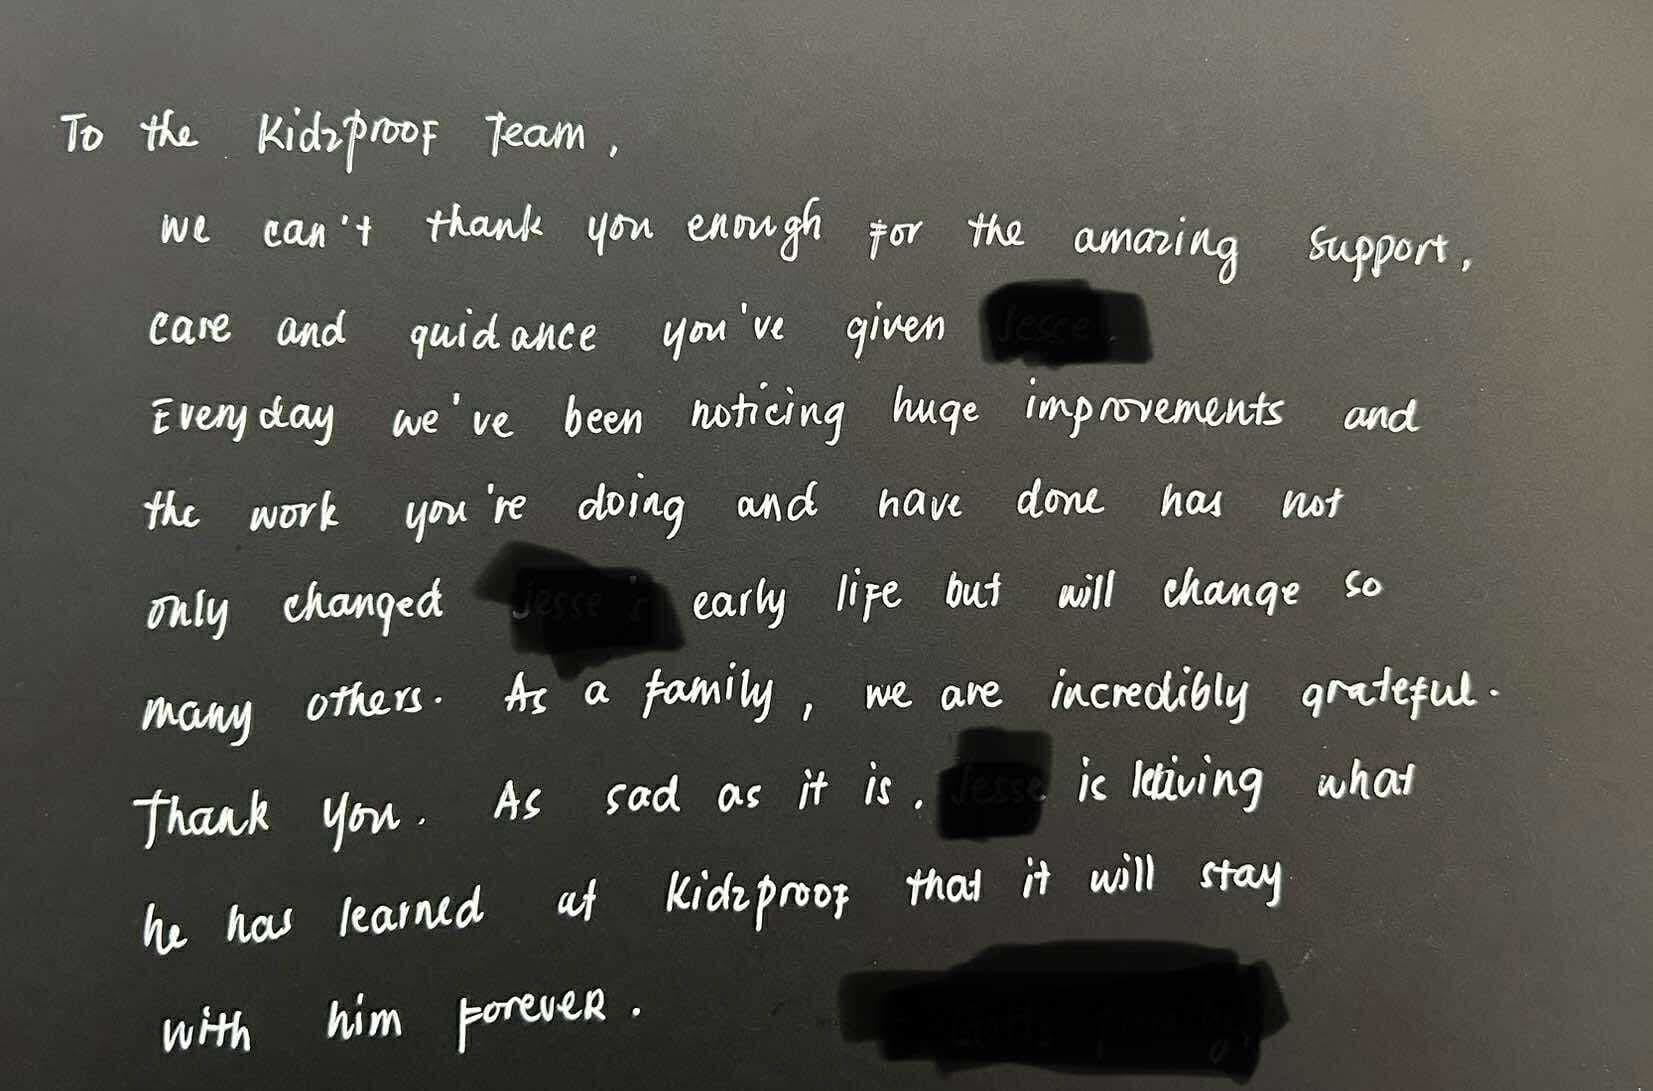 To the Kidzproof Team,
we can't thank you enough for the amazing support,
care and guidance you've given
Everyday we've been noticing huge improvements and
the work you're doing and have done has not
only changed early life but will change so
many others. As a family, we are incredibly grateful.
Thank you. As sad as it is, is what
he has learned at Kidzproof that it will stay
with him forever.